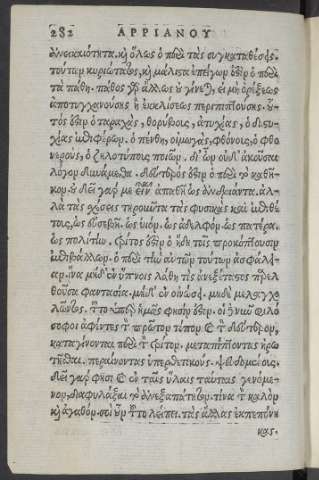 282 ΑΡΡΙΑΝΟΥ
ἀνεικαιότητα. κὴ ὅλως ὁ περὶ τὰς συγκαταθέσεις.
τούτων κυριώτατος, κὴ μάλιστα ἐπείγων ἐστὶν ὁ περὶ
τὰ πάθη. πάθος γὰρ ἄλλως οὐ γίνεται, εἰ μὴ ὀρέξεως
ἀποτυγχανούσης ἢ ἐκκλίσεως περιπιπτούσης. οὗ-
τός ἐστιν ὁ ταραχὰς, θορύβους, ἀτυχίας, ὁ δυςτυ-
χίας ἐπιφέρων. ὁ πένθη, οἰμωγὰς, φθόνους, ὁ φθο
νερούς, ὁ ζηλοτύπους ποιῶν. δι' ὧν οὐδ' ἀκοῦσαι
λόγου δυνάμεθα. δεύτερός ἐστιν ὁ περὶ τὸ καθῆ-
κον. οὐ δεῖ γάρ με εἶναι ἀπαθῆ ὡς ἀνδριάντα. ἀλ-
λὰ τὰς χέσεις τηροῦντα τὰς φυσικὰς καὶ ἐπιθέ-
τους, ὡς εὐσεβῆ. ὡς υἱόν. ὡς ἀδελφόν. ὡς πατέρα.
ὡς πολίτην. τρίτος ἐστὶν ὁ ἤδη τοῖς προκόπτουσιν
ἐπιβάλλων. ὁ περὶ τὴν αὐτῶν τούτων ἀσφάλει-
αν. ἵνα μηδ' ἐν ὕπνοις λάθῃ τὶς ἀνεξέταστος παρελ
θοῦσα φαντασία. μηδ' ἐν οἰνώσει. μηδὲ μελαγχο
λῶντος. τοῦτο ὑπὲρ ἡμᾶς φησὶν ἐστιν. οἱ δὲ νῦν φιλό
σοφοι ἀφέντες τὸν πρῶτον τόπον καὶ τὸν δεύτερον.
καταγίνονται περὶ τὸν τρίτον. μεταπίπτοντας ἠρω
τῆσθαι. περαίνοντας ὑπερθετικούς. ψευδομένους.
δεῖ γάρ φησι καὶ ἐν ταῖς ὕλαις ταύταις γενόμε-
νον, διαφυλάξαι τὸ ἀνεξαπάτητον. τίνα τὸν καλὸν
κὴ ἀγαθόν. σοὶ οὖν τοῦτο λείπει. τὰς ἄλλας ἐκπεπόνη
κας.